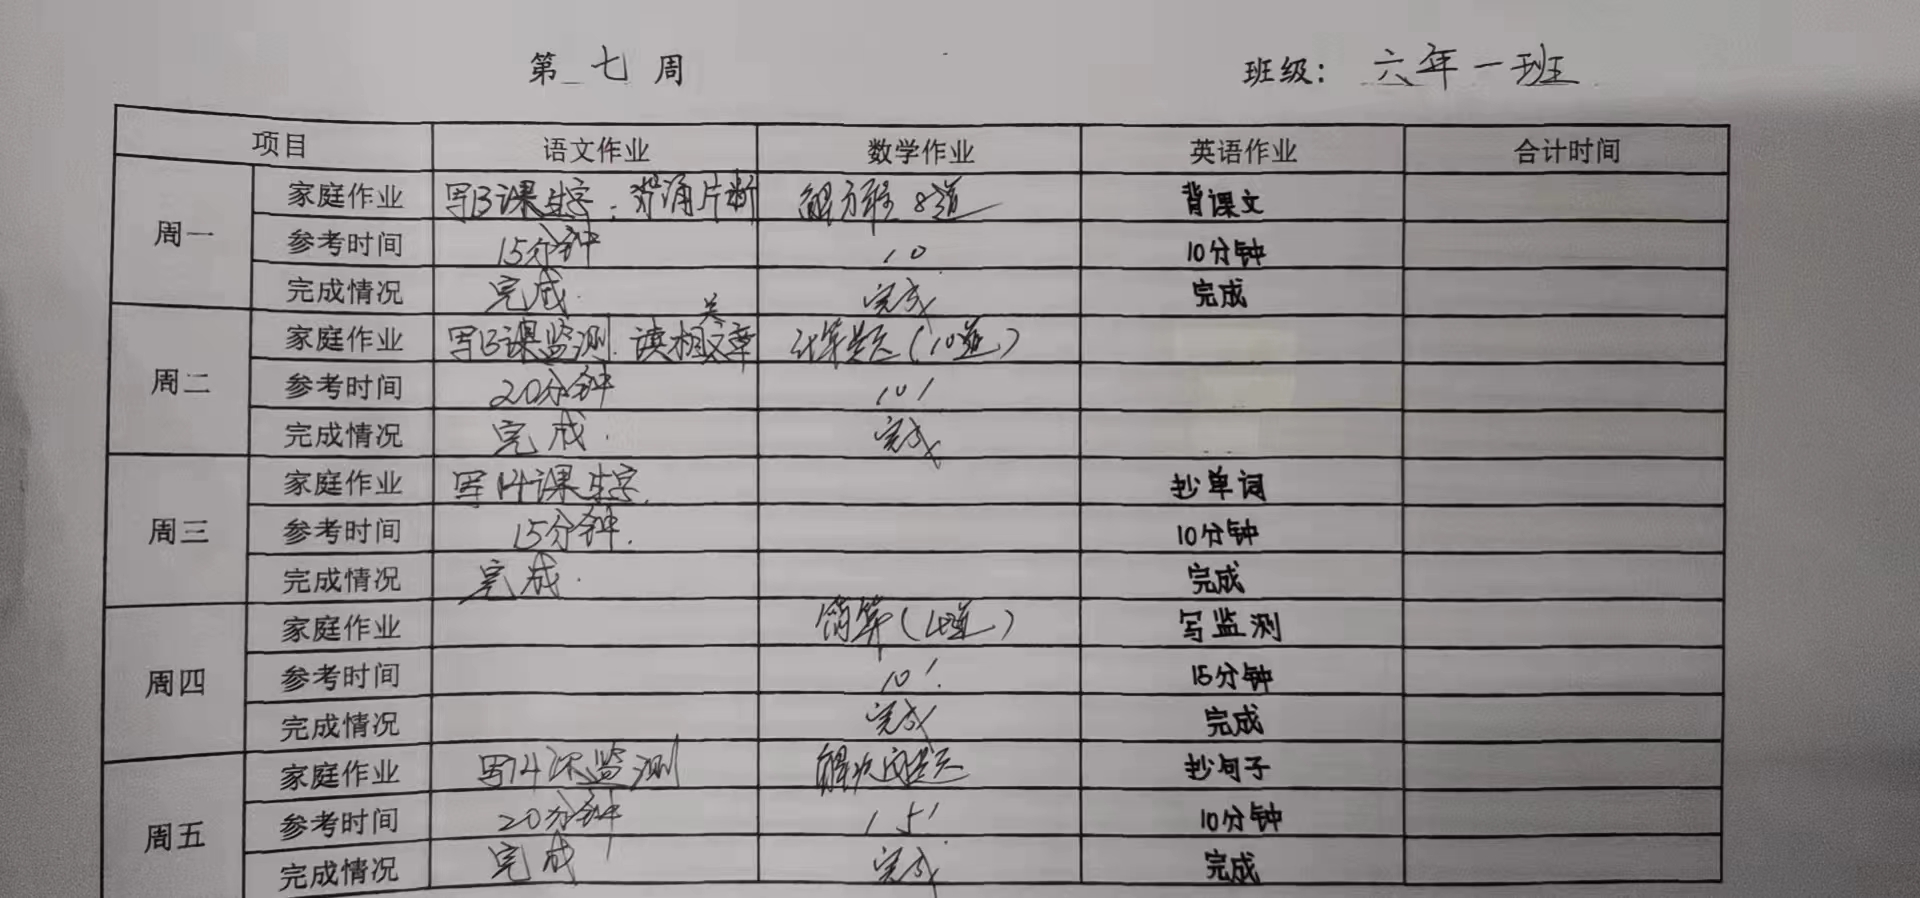 第 七 周 班级: 六年一班
项目 语文作业 数学作业 英语作业 合计时间
周一 家庭作业 写13课生字. 背诵片断 解方程 8道 背课文
参考时间 15分钟 10 10分钟
完成情况 完成. 完成 完成
周二 家庭作业 写13课监测. 读相关文章 计算题(10道)
参考时间 20分钟 10'
完成情况 完成. 完成
周三 家庭作业 写14课生字. 抄单词
参考时间 15分钟. 10分钟
完成情况 完成. 完成
周四 家庭作业 简算( 道) 写监测
参考时间 10'. 15分钟
完成情况 完成 完成
周五 家庭作业 写14课监测 解决问题 抄句子
参考时间 20分钟 15' 10分钟
完成情况 完成 完成 完成